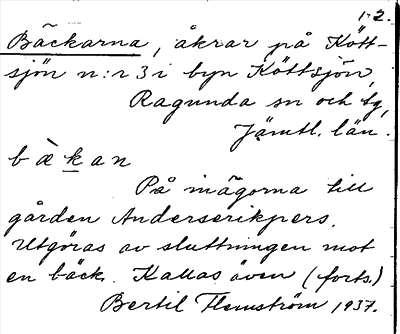 1-2.
Bäckarna, åkrar på Kött-
sjön n:r 3 i byn Köttsjön,
Ragunda sn och tg,
Jämtl. län.
b à k a n
På inägorna till
gården Anderserikpers.
Utgöras av sluttningen mot
en bäck. Kallas även (forts.)
Bertil Flemström 1937.